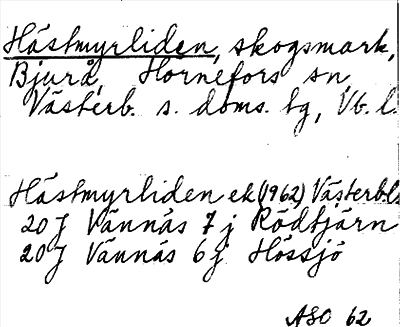 Hästmyrliden, skogsmark,
Bjurå, Hörnefors sn,
Västerb. s. doms. tg, Vb. l.
Hästmyrliden ek (1962) Västerbl
20 J Vännäs 7 j Rödtjärn
20 J Vännäs 6 j Hössjö
ASO 62